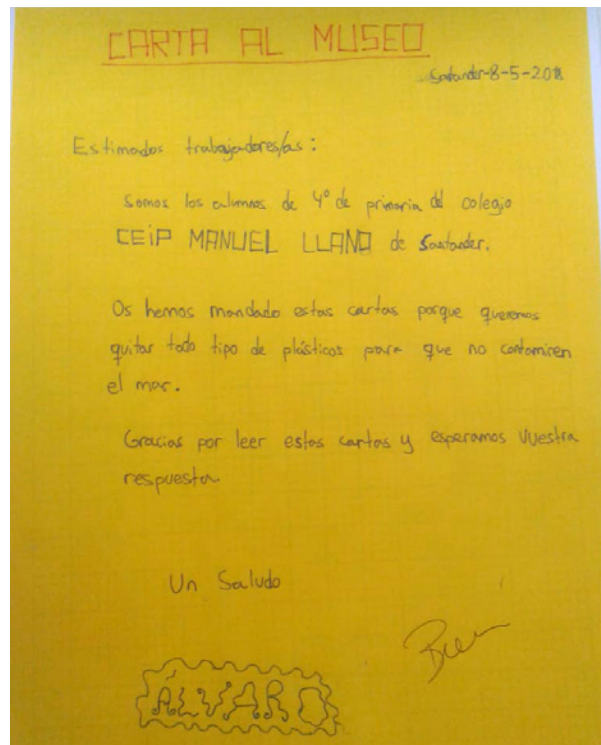 CARTA AL MUSEO
Santander-8-5-2018
Estimados trabajadores/as:
Somos los alumnos de 4º de primaria del colegio
CEIP MANUEL LLANO de Santander.
Os hemos mandado estas cartas porque queremos
quitar todo tipo de plásticos para que no contaminen
el mar.
Gracias por leer estas cartas y esperamos vuestra
respuesta.
Un Saludo
Bien
ÁLVARO